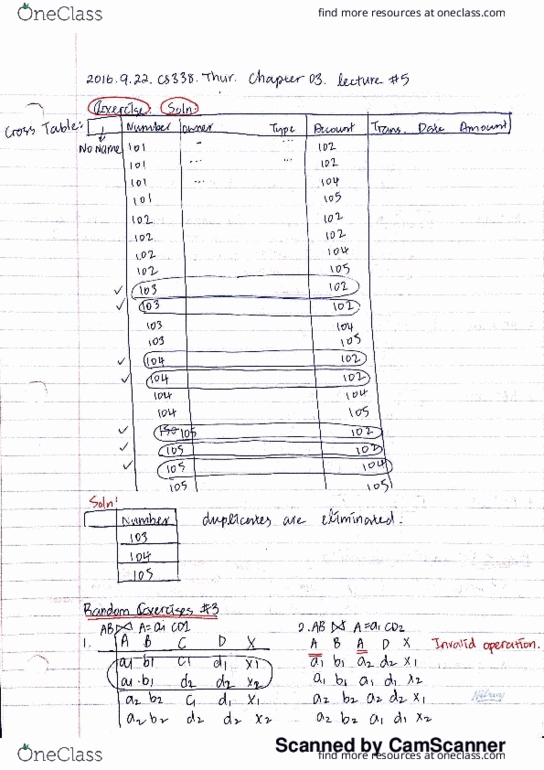 OneClass find more resources at oneclass.com
2016.9.22. CS338. Thur. Chapter 03. lecture #5
Exercise: Soln:
Cross Table: Number owner Type Account Trans. Date Amount
No Name 101 102
101 ... ... 102
101 ... 104
101 105
102 102
102 102
102 104
102 105
✓ 103 102
✓ 103 102
103 104
103 105
✓ 104 102
✓ 104 102
104 104
104 105
✓ 105 102
✓ 105 102
✓ 105 104
105 105
Soln:
Number duplicates are eliminated.
103
104
105
Random Exercises #3
AB⋈ A=a1 CD1 2. AB ⋈ A=a1 CD2
1. A B C D X A B A D X Invalid operation.
a1 b1 c1 d1 x1 a1 b1 a2 d2 x1
a1 b1 d2 d2 x2 a1 b1 a1 d1 x2
a2 b2 c1 d1 x1 a2 b2 a2 d2 x1
a2 b2 d2 d2 x2 a2 b2 a1 d1 x2
Scanned by CamScanner
OneClass find more resources at oneclass.com